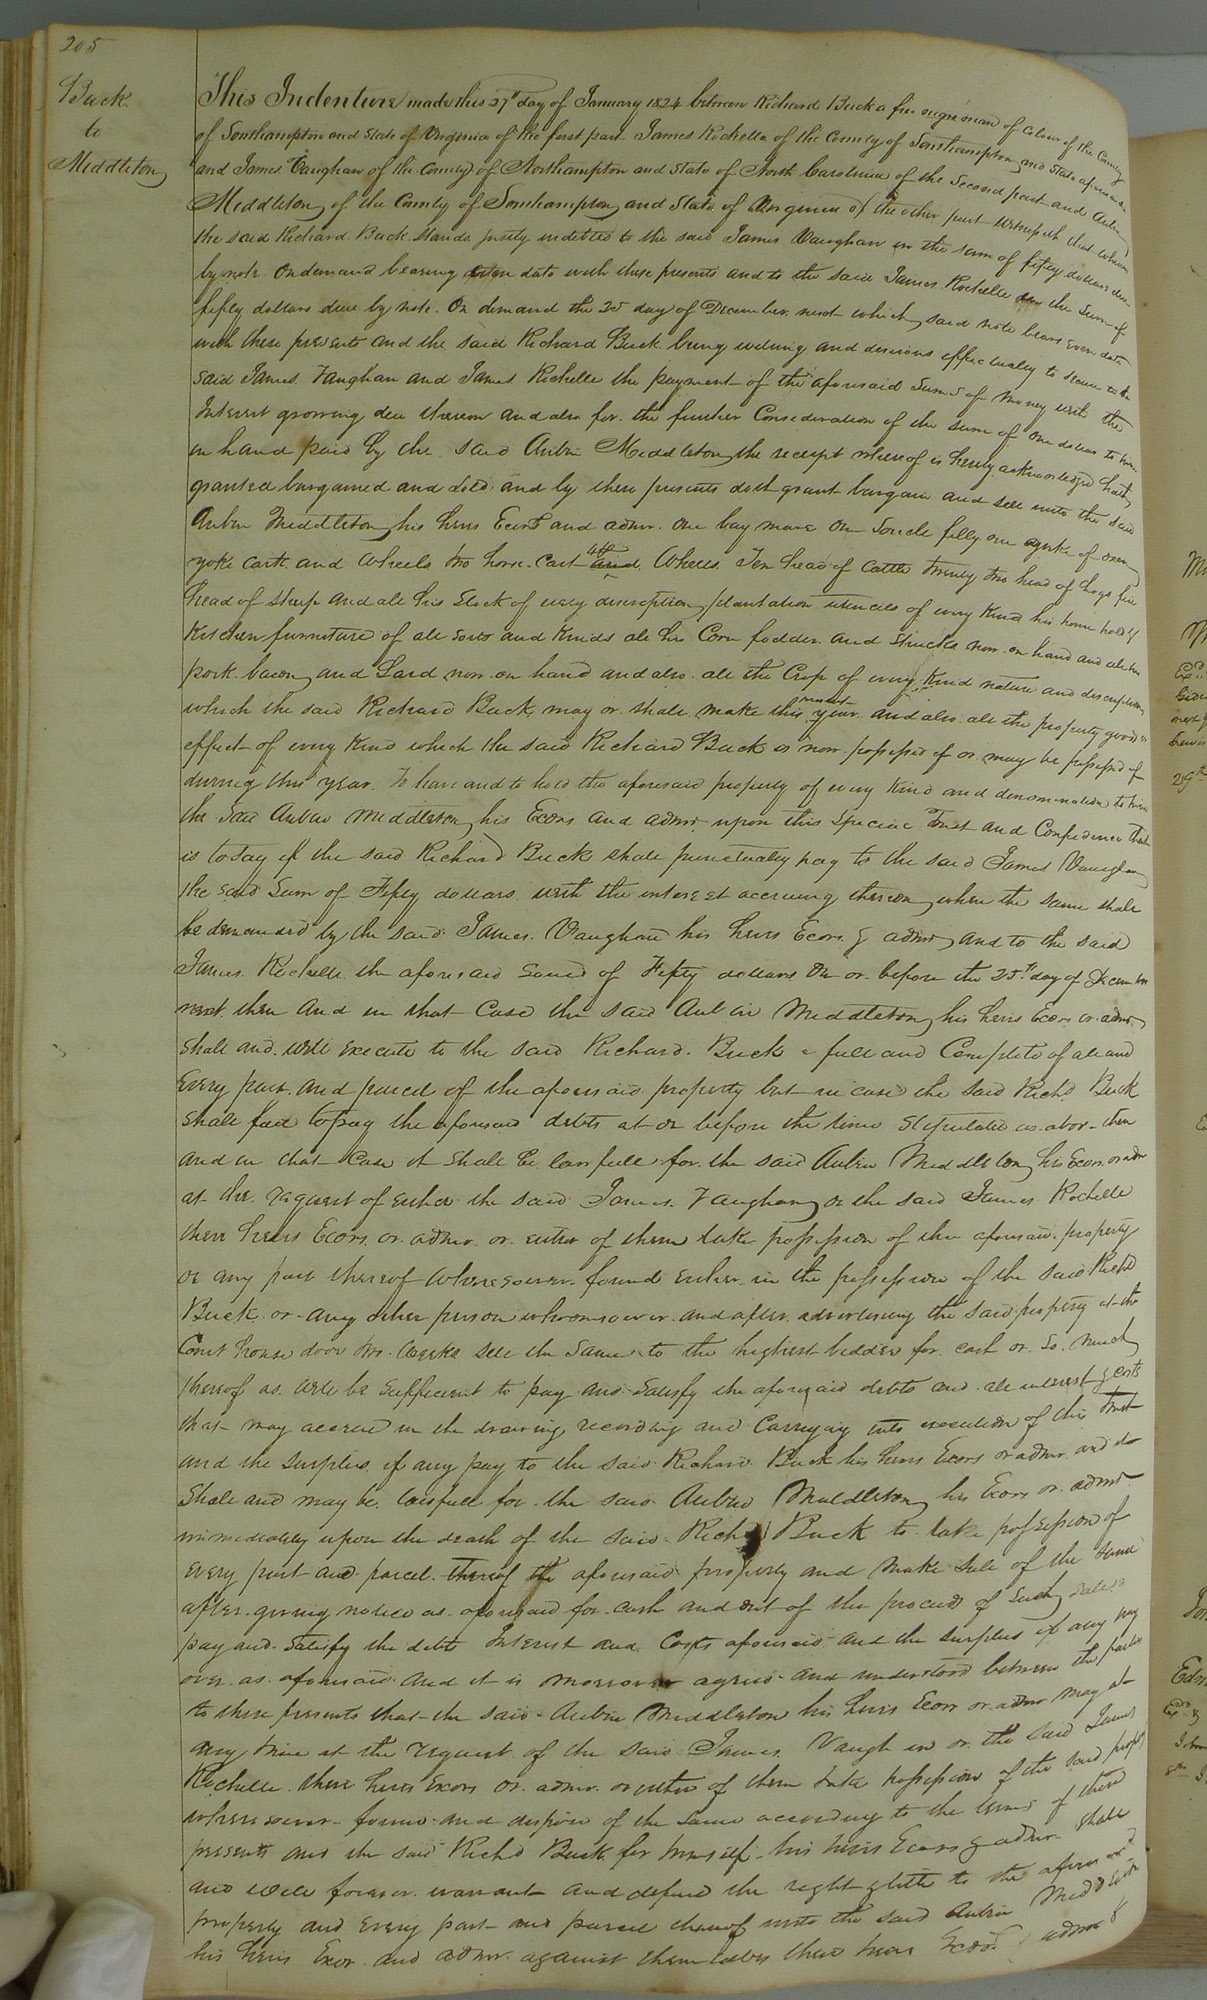 205
Buck
to
Middleton
This Indenture made this 27th day of January 1824 between Richard Buck a free negro man of Colour of the County
of Southampton and State of Virginia of the first part James Rochelle of the County of Southampton and State aforesaid
and James Vaughan of the County of Northampton and State of North Carolina of the Second part and Aubin
Middleton of the County of Southampton and State of Virginia of the other part Witnesseth that whereas
the said Richard Buck stands justly indebted to the said James Vaughan in the sum of fifty dollars due
by note On demand bearing even date with these presents and to the said James Rochelle in the Sum of
fifty dollars due by note On demand the 25 day of December next which said note bears even date
with these presents and the said Richard Buck being willing and desirous effectually to secure to the
said James Vaughan and James Rochelle the payment of the aforesaid Sums of Money with the
Interest growing due thereon and also for the further Consideration of the sum of one dollar to him
in hand paid by the said Aubin Middleton the receipt whereof is hereby acknowledged hath
granted bargained and sold and by these presents doth grant bargain and sell unto the said
Aubin Middleton his heirs Ecors and admr. One bay mare One Sorrele filly one yoke of oxen
yoke cart and Wheels two horse Cart and Wheels Ten head of Cattle twenty two head of hogs five
head of sheep and all his Stock of every description plantation utencils of every Kind his house hold &
Kitchen furniture of all sorts and Kinds all his Corn fodder and Shucks now on hand and all his
pork bacon and Lard now on hand and also all the Crop of every Kind nature and description
which the said Richard Buck may or shall make this year and also all the property goods &
effect of every Kind which the said Richard Buck is now possessed of or may be possessed of
during this year To have and to hold the aforesaid property of every Kind and denomination to him
the said Aubin Middleton his Ecors and admr upon this Special Trust and Confidence that
is to say if the said Richard Buck shall punctually pay to the said James Vaughan
the said Sum of Fifty dollars with the interest accruing thereon when the same shall
be demanded by the said James Vaughan his heirs Ecors & admr and to the said
James Rochelle the aforesaid Sum of Fifty dollars On or before the 25th day of December
next then and in that Case the said Aubin Middleton his heirs Ecors or admr
shall and will execute to the said Richard Buck a full and Complete of all and
Every part and parcel of the aforesaid property but in case the said Richd Buck
shall fail to pay the aforesaid debts at or before the time Stipulated as abov then
and in that Case it shall be lawfull for the said Aubin Middleton his Ecors or admr
at the request of either the said James Vaughan or the said James Rochelle
there heirs Ecors or admr or either of them take possession of the aforesaid property
or any part thereof Wheresoever found either in the possession of the said Richd
Buck or any other person whomsoever and after advertising the said property at the
Court house door two weeks sell the same to the highest bidder for cash or So Much
thereof as will be Sufficient to pay and Satisfy the aforesaid debts and all interest & costs
that may accrue in the drawing recording and Carrying into execution of this trust
and the Surplus if any pay to the said Richard Buck his heirs Ecors or admr and it
Shall and may be lawfull for the said Aubin Middleton his Ecors or admr
immediately upon the death of the said Richd Buck to take possession of
every part and parcel thereof the aforesaid property and make Sale of the same
after giving notice as aforesaid for cash and out of the proceeds of such sale
pay and Satisfy the debts Interest and Costs aforesaid and the surplus if any pay
over as aforesaid And it is moreover agreed and understood between the parties
to these presents that the said Aubin Middleton his heirs Ecors or admr may at
any time at the request of the said James Vaughan or the said James
Rochelle there heirs Excors or admr or either of them take possession of the said property
wheresoever found and dispose of the same according to the terms of these
presents and the said Richd Buck for himself his heirs Ecors & admr shall
and will forever warrant and defend the right & title to the aforesaid
property and every part and parcel thereof unto the said Aubin Middleton
his heirs Exor and admr against them there heirs Ecors admr &